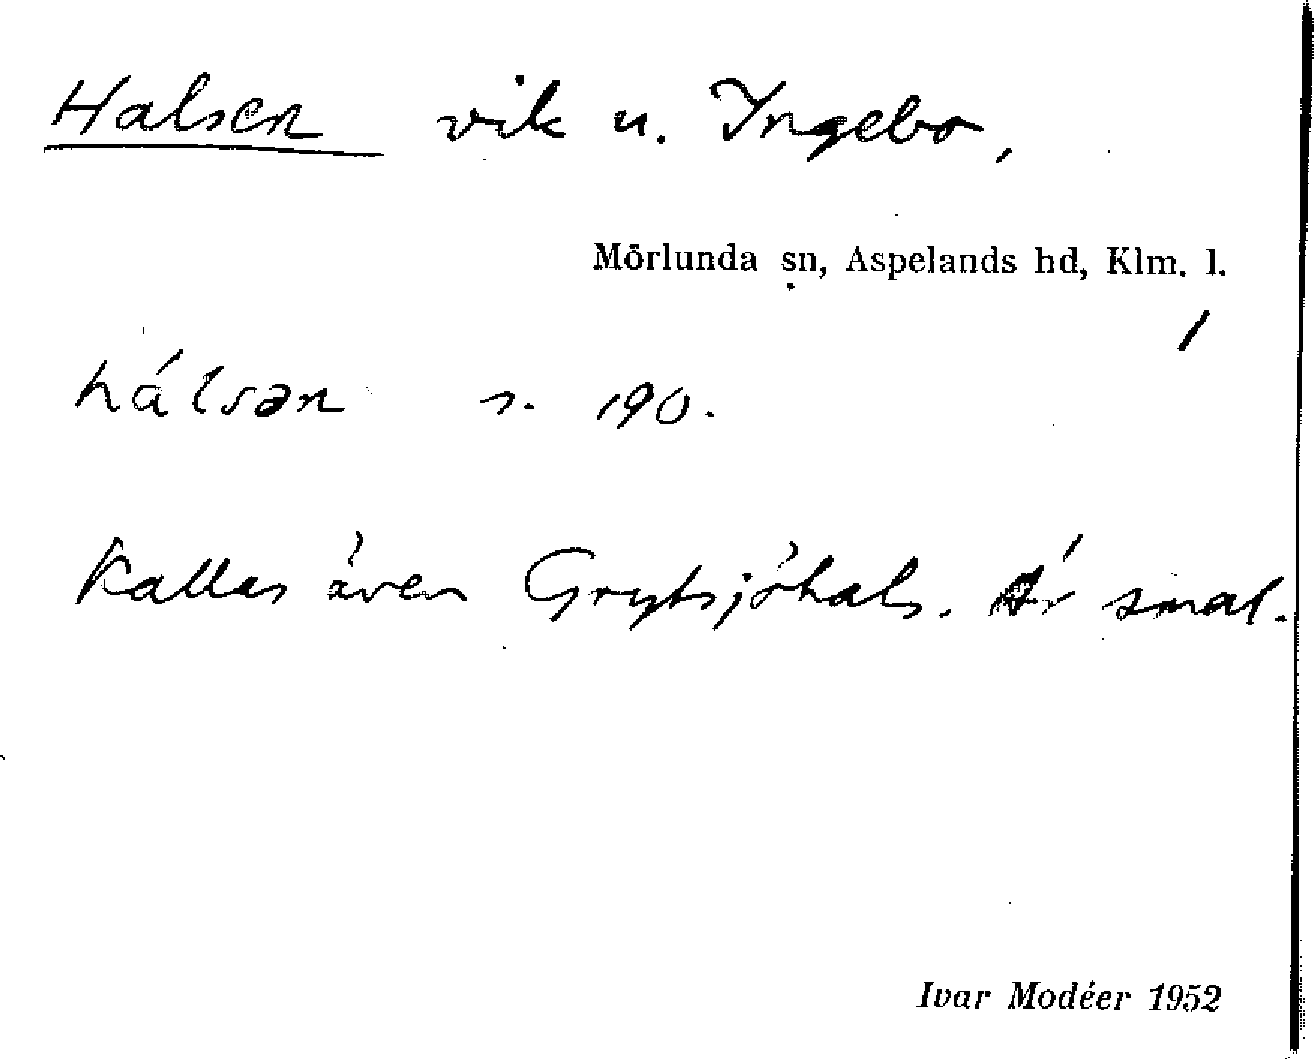 Halsen vik u. Ingebo,
Mörlunda sn, Aspelands hd, Klm. l.
hálsən s. 190.
Kallas även Grytsjöhals. Är smal.
Ivar Modéer 1952